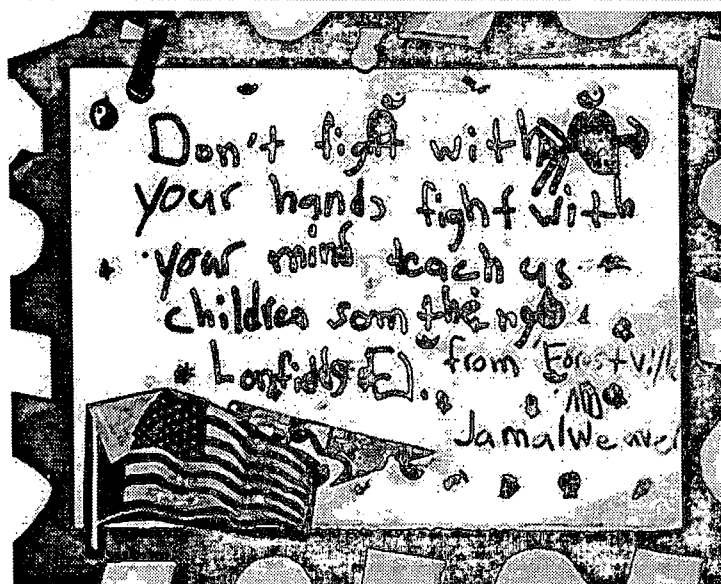 Don't fight with
your hands fight with
your mind teach us
children som the ng
from Forestville
MD
Jamal Weaver